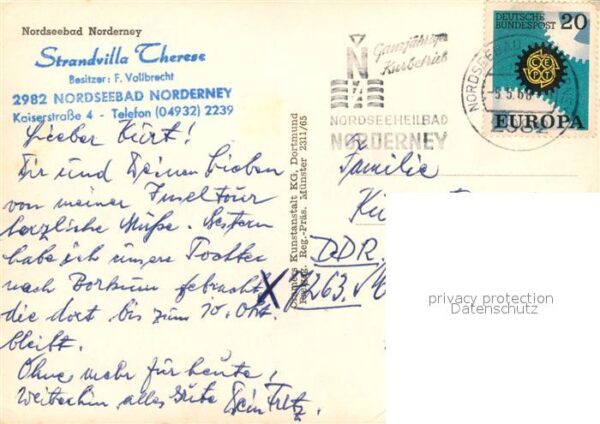 Nordseebad Norderney
Strandvilla Therese
Besitzer: F. Vollbrecht
2982 NORDSEEBAD NORDERNEY
Kaiserstraße 4 - Telefon (04932) 2239
Lieber Kurt!
Dir und Deinen Lieben
von meiner Inseltour
herzliche Grüße. Gestern
habe ich unsere Tochter
nach Borkum gebracht,
die dort bis zum 10. Okt.
bleibt.
Ohne mehr für heute!
Weiterhin alles Gute Dein Fritz.
Kunstanstalt KG, Dortmund
Reg.-Präs. Münster 2311/65
Ganzjähriger
Kurbetrieb
N
NORDSEEHEILBAD
NORDERNEY
NORDSEEBAD
2982
DEUTSCHE
BUNDESPOST
20
CEPT
EUROPA
Familie
DDR.
X 7263.
privacy protection
Datenschutz